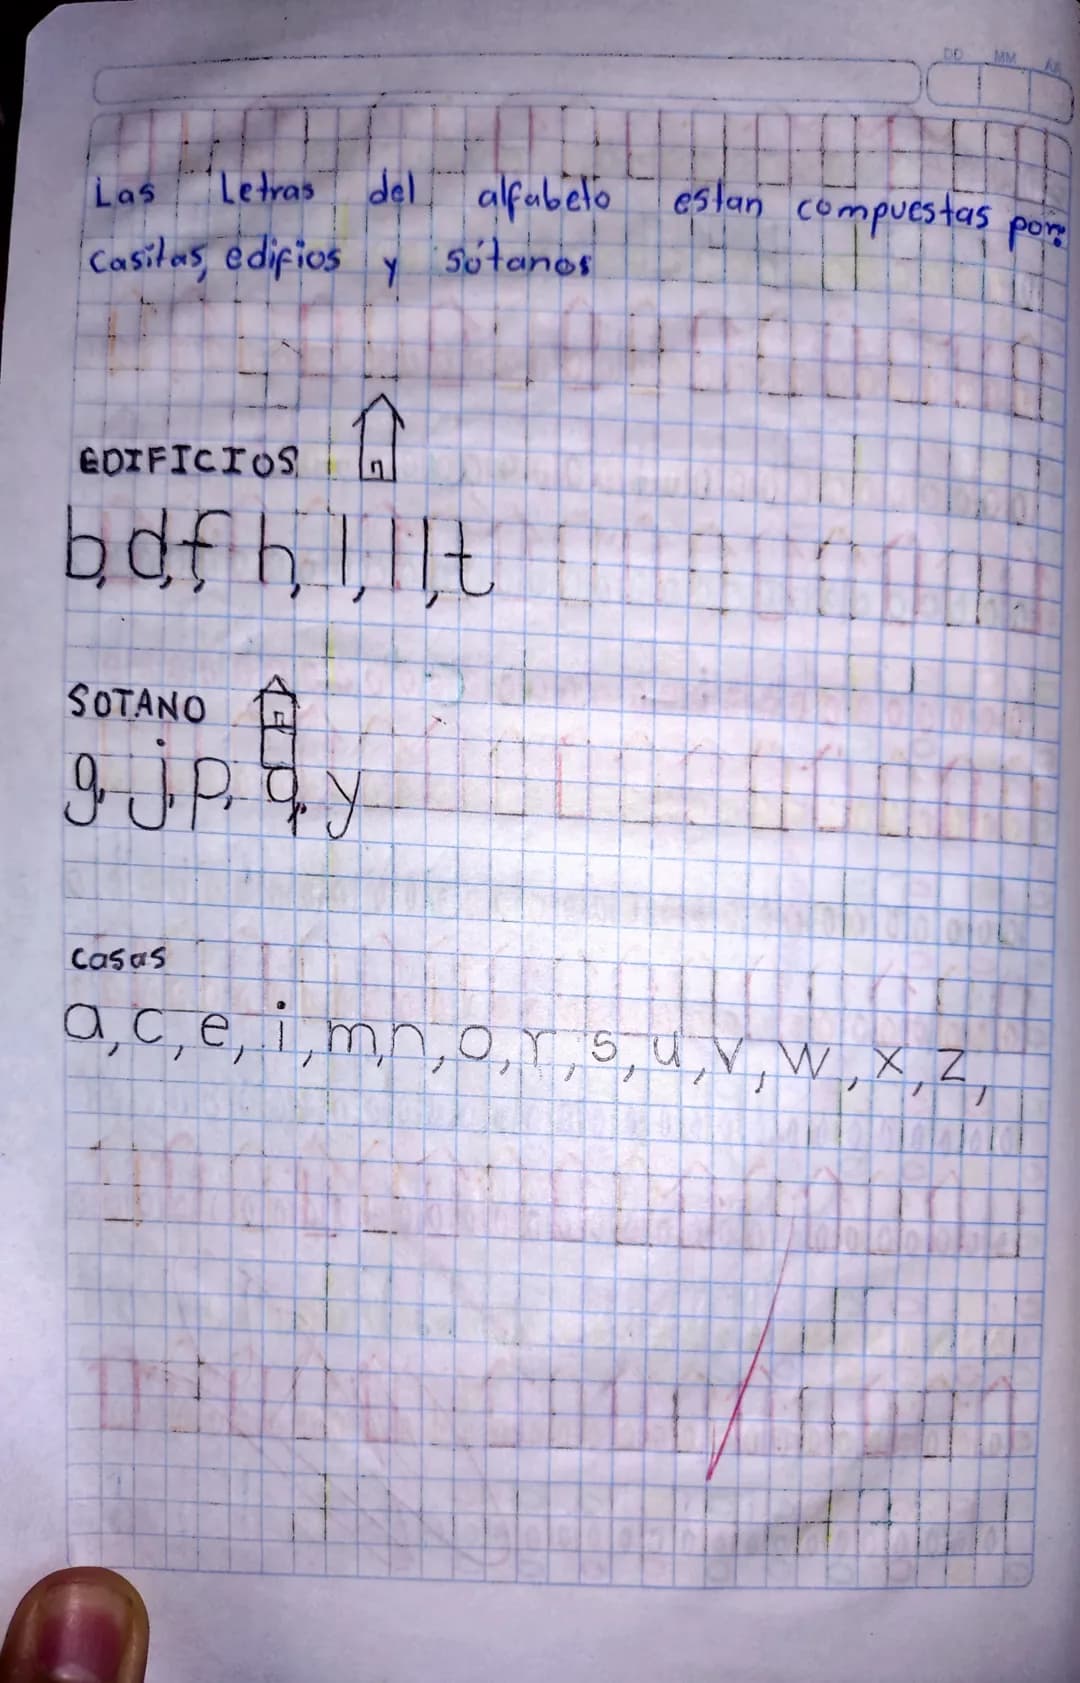 DD MM AA
Las Letras del alfabeto estan compuestas por:
casitas, edifios y sótanos
EDIFICIOS
b, d, f, h, l, ll, t
SOTANO
g, j, p, q, y
casas
a, c, e, i, m, n, o, r, s, u, v, w, x, z,